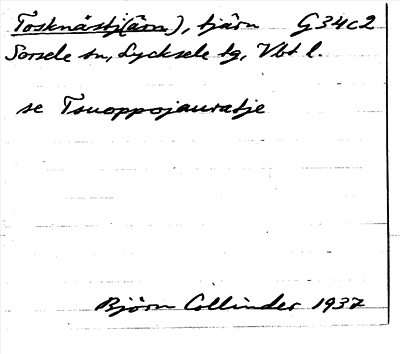 Tosknästj(ärn), tjärn G34c2
Sorsele sn, Lycksele tg, Vbt l.
se Tsuoppojauratje
Björn Collinder 1937